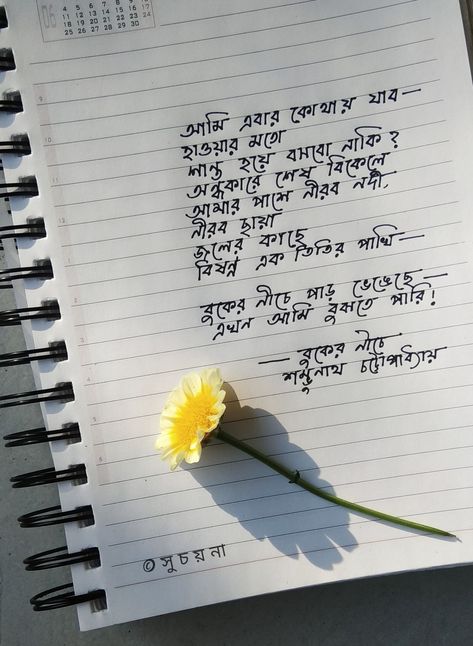 06
4 5 6 7 8 9 10
11 12 13 14 15 16 17
18 19 20 21 22 23 24
25 26 27 28 29 30
আমি এবার কোথায় যাব—
হাওয়ার মতো
শান্ত হয়ে বসবো নাকি?
অন্ধকারে শেষ বিকেলে
আমার পাশে নীরব নদী,
নীরব ছায়া
জলের কাছে
বিষন্ন এক তিতির পাখি—
বুকের নীচে পাড় ভেঙেছে—
এখন আমি বুঝতে পারি!
— বুকের নীচে
শম্ভুনাথ চট্টোপাধ্যায়
© সুচয়না